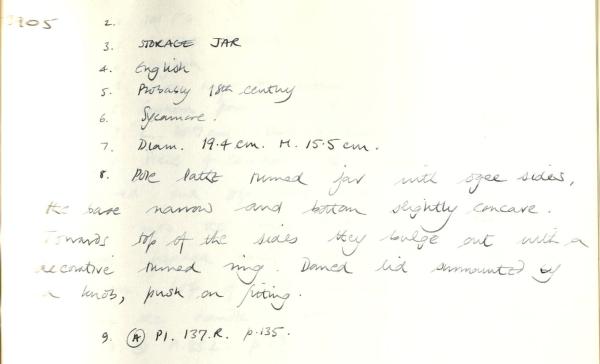 905
2.
3. STORAGE JAR
4. English
5. Probably 18th century
6. Sycamore.
7. Diam. 19.4 cm. H. 15.5 cm.
8. Pole lathe turned jar with ogee sides,
the base narrow and bottom slightly concave.
Towards top of the sides they bulge out with a
decorative turned ring. Domed lid surmounted by
a knob, push on fitting.
9. (A) Pl. 137.R. p.135.